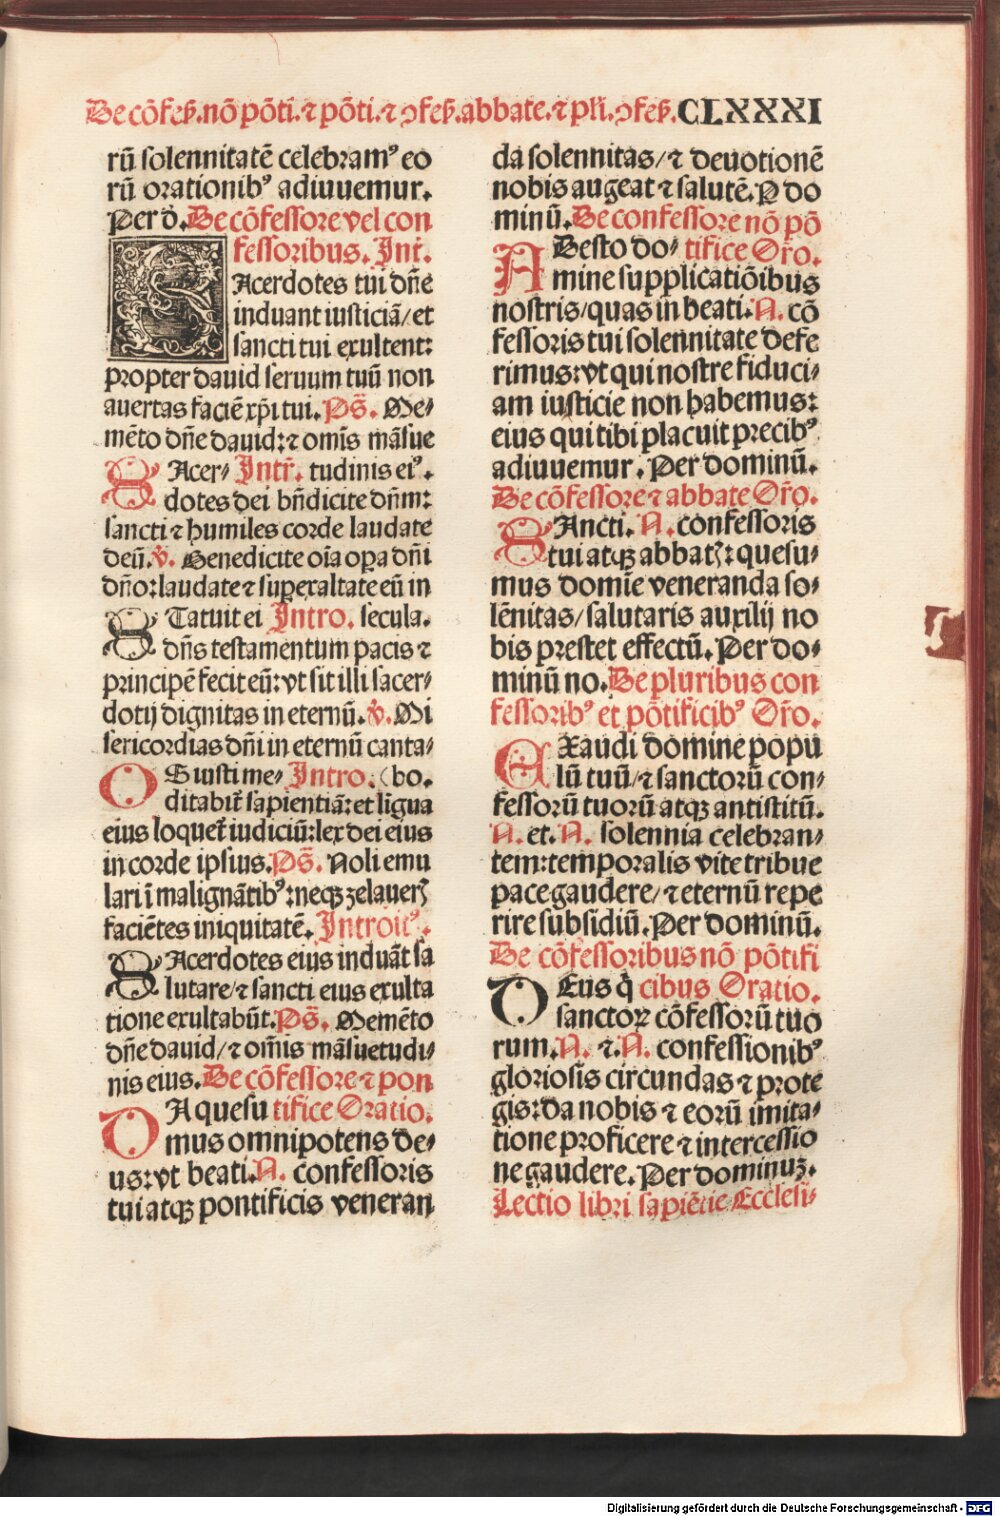 De cōfeſſ. nō pōti. ⁊ pōti. ⁊ ↄfeſſ. abbate. ⁊ pli. ↄfeſſ. CLXXXI
rū ſolennitatē celebramꝰ eo
rū orationibꝰ adiuuemur.
Per dō. De cōfeſſore vel con
feſſoribus. Intꝛ.
SAcerdotes tui dn̄e
induant iuſticiā/ et
ſancti tui exultent:
propter dauid ſeruum tuū non
auertas faciē xp̄i tui. Ps̄. Me⸗
mēto dn̄e dauid: ⁊ om̄is māſue
SAcer⸗ Intꝛ. tudinis eiꝰ.
dotes dei bn̄dicite dn̄m:
ſancti ⁊ humiles corde laudate
deū. v̄. Benedicite oīa oꝑa dn̄i
dn̄o: laudate ⁊ ſuꝑexaltate eū in
STatuit ei Intro. ſecula.
dn̄s teſtamentum pacis ⁊
principē fecit eū: vt ſit illi ſacer⸗
dotij dignitas in eternū. v̄. Mi
ſericordias dn̄i in eternū canta⸗
OS iuſti me⸗ Intro. (bo.
ditabit̄ ſapientiā: et līgua
eius loquet̄ iudiciū: lex dei eius
in corde ipſius. Ps̄. Noli emu
lari ī malignātibꝰ: neqꝫ zelauerꝭ
faciētes iniquitatē. Introitꝰ.
SAcerdotes eius induāt ſa
lutare/ ⁊ ſancti eius exulta
tione exultabūt. Ps̄. Memēto
dn̄e dauid/ ⁊ om̄is māſuetudi⸗
nis eius. De cōfeſſore ⁊ pon
DA queſu tifice Oratio.
mus omnipotens de⸗
us: vt beati. N. confeſſoris
tui atqꝫ pontificis veneran
da ſolennitas/ ⁊ deuotionē
nobis augeat ⁊ ſalutē. P do
minū. De confeſſore nō pō
ADeſto do⸗ tifice Oro.
mine ſupplicatiōibus
noſtris/ quas in beati. N. cō
feſſoris tui ſolennitate defe
rimus: vt qui noſtre fiduci⸗
am iuſticie non habemus:
eius qui tibi placuit precibꝰ
adiuuemur. Per dominū.
De cōfeſſore ⁊ abbate Oro.
SAncti. N. confeſſoris
tui atqꝫ abbatꝭ: queſu⸗
mus domīe veneranda ſo⸗
lēnitas/ ſalutaris auxilij no
bis preſtet effectū. Per do⸗
minū no. De pluribus con
feſſoribꝰ et pōtificibꝰ Oro.
EXaudi domine popu
lū tuū/ ⁊ ſanctorū con⸗
feſſorū tuorū atqꝫ antiſtitū.
N. et. N. ſolennia celebran⸗
tem: temporalis vite tribue
pace gaudere/ ⁊ eternū repe
rire ſubſidiū. Per dominū.
De cōfeſſoribus nō pōtifi
DEus q̄ cibus Oratio.
ſanctoꝝ cōfeſſorū tuo
rum. N. ⁊. N. confeſſionibꝰ
glorioſis circundas ⁊ prote
gis: da nobis ⁊ eorū imita⸗
tione proficere ⁊ interceſſio
ne gaudere. Per dominuꝫ.
Lectio libri ſapiētie Eccleſi⸗
Digitalisierung gefördert durch die Deutsche Forschungsgemeinschaft - DFG